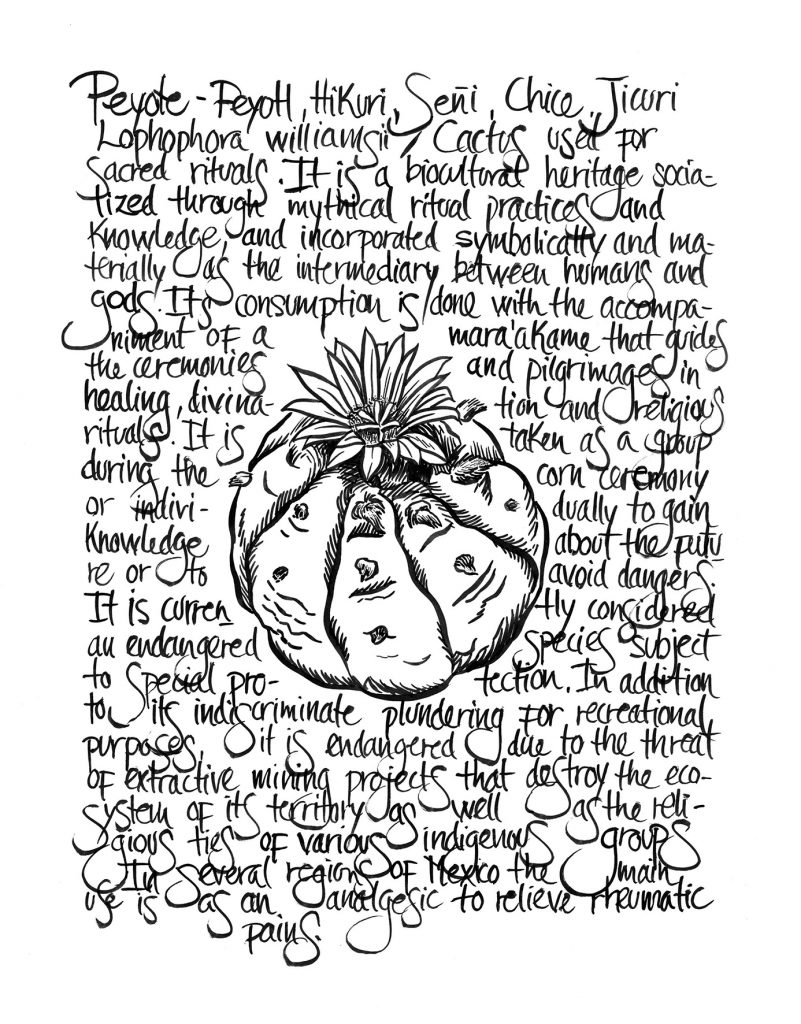 Peyote - Peyotl, Hikuri, Señi, Chice, Jicuri
Lophophora williamsii / Cactus used for
sacred rituals. It is a biocultural heritage socia-
tized through mythical ritual practices and
Knowledge, and incorporated symbolicatty and ma-
terially as the intermediary between humans and
gods. Its consumption is done with the accompa-
niment of a mara'akame that guides
the ceremonies and pilgrimages in
healing, divina- tion and religious
rituals. It is taken as a group
during the corn ceremony
or indivi- dually to gain
Knowledge about the futu
re or to avoid dangers.
It is curren tly considered
an endangered species subject
to special pro- tection. In addition
to its indiscriminate plundering for recreational
purposes, it is endangered due to the threat
of extractive mining projects that destroy the eco-
system of its territory as well as the reli-
gious ties of various indigenous groups
In several regions of Mexico the main
use is as an analgesic to relieve rheumatic
pains.